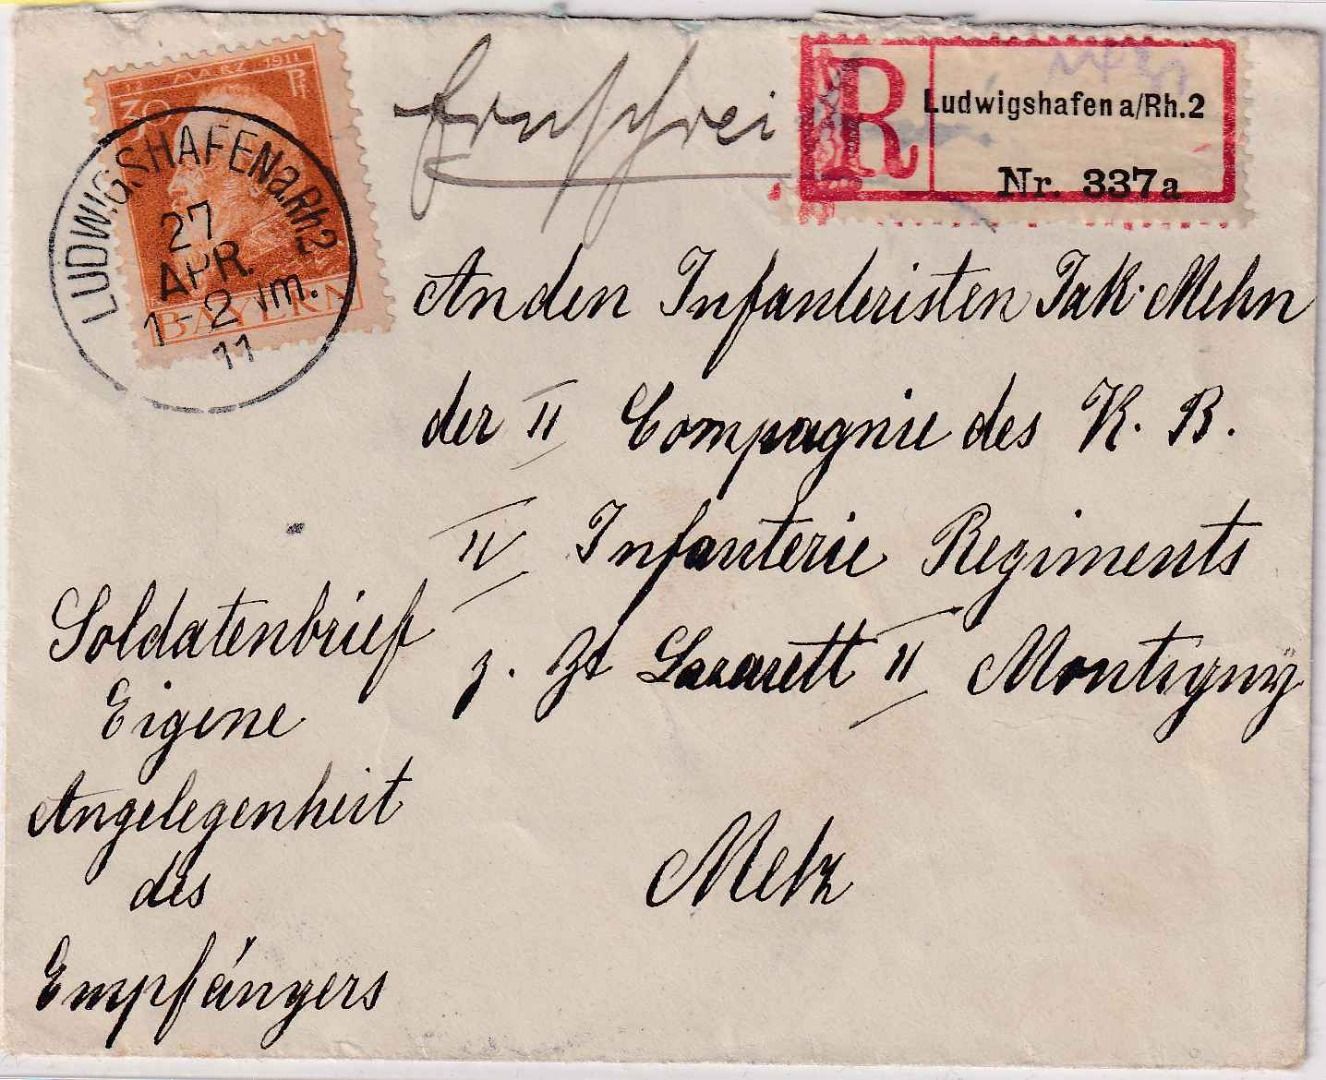 12 MÄRZ 1911
30 Pf
BAYERN
LUDWIGSHAFEN a. Rh 2
27
APR.
1-2 Nm.
11
R
Ludwigshafen a/Rh. 2
Nr. 337a
An den Infanteristen Jak. Mehn
der II Compagnie des K. B.
IV Infanterie Regiments
z. Zt Lazarett II Montigny
Metz
Soldatenbrief
Eigene
Angelegenheit
des
Empfängers